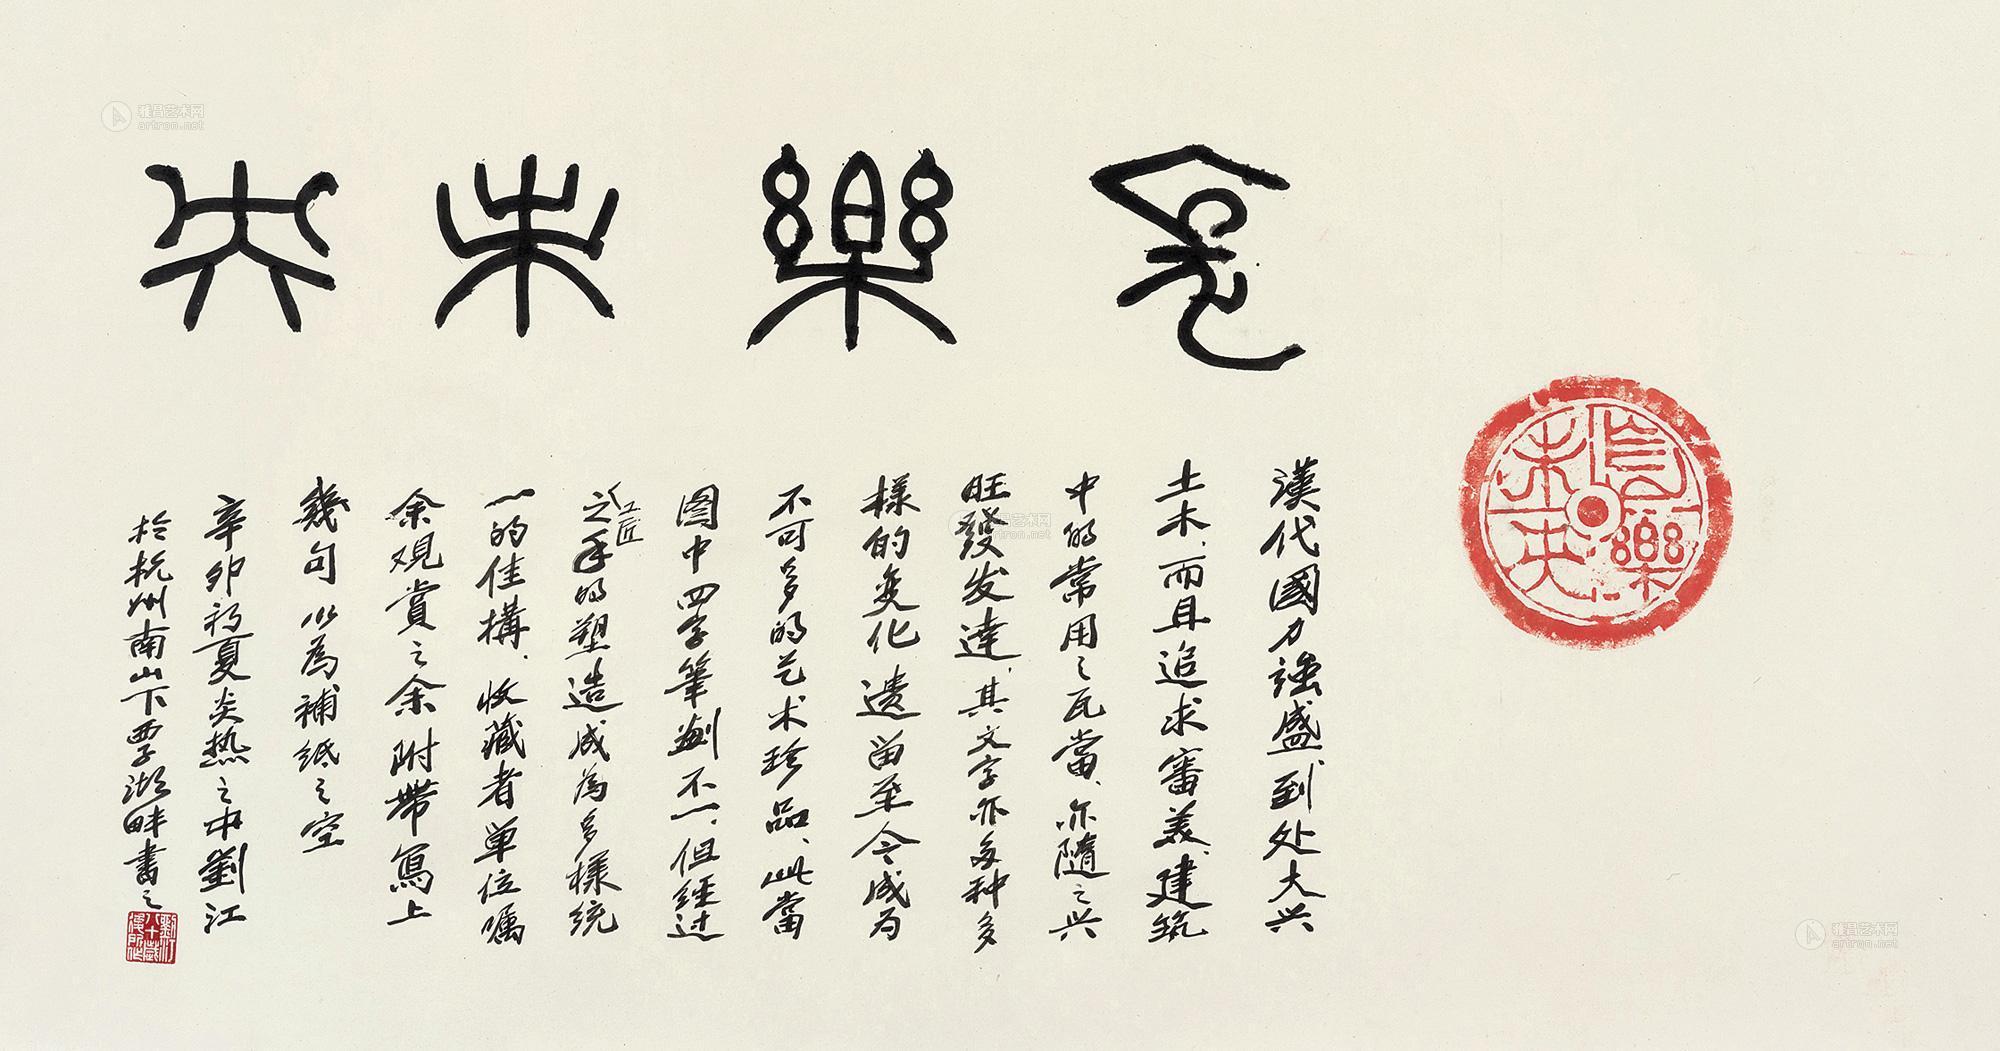 樂未央
樂未央
漢代國力強盛到处大兴
土木,而且追求審美,建筑
中的常用之瓦當、亦隨之兴
旺發发達,其文字亦多种多
樣的变化遗留至今成为
不可多的艺术珍品、此當
图中四字筆劃不一,但經过
工匠之手的塑造成為多樣统
一的佳構、收藏者单位嘱
余观賞之余附帶寫上
幾句以為補紙之空
辛卯初夏炎热之中劉江
於杭州南山下西子湖畔書之
劉江八十歲後所作
雅昌艺术网
artron.net
雅昌艺术网
artron.net
雅昌艺术网
artron.net